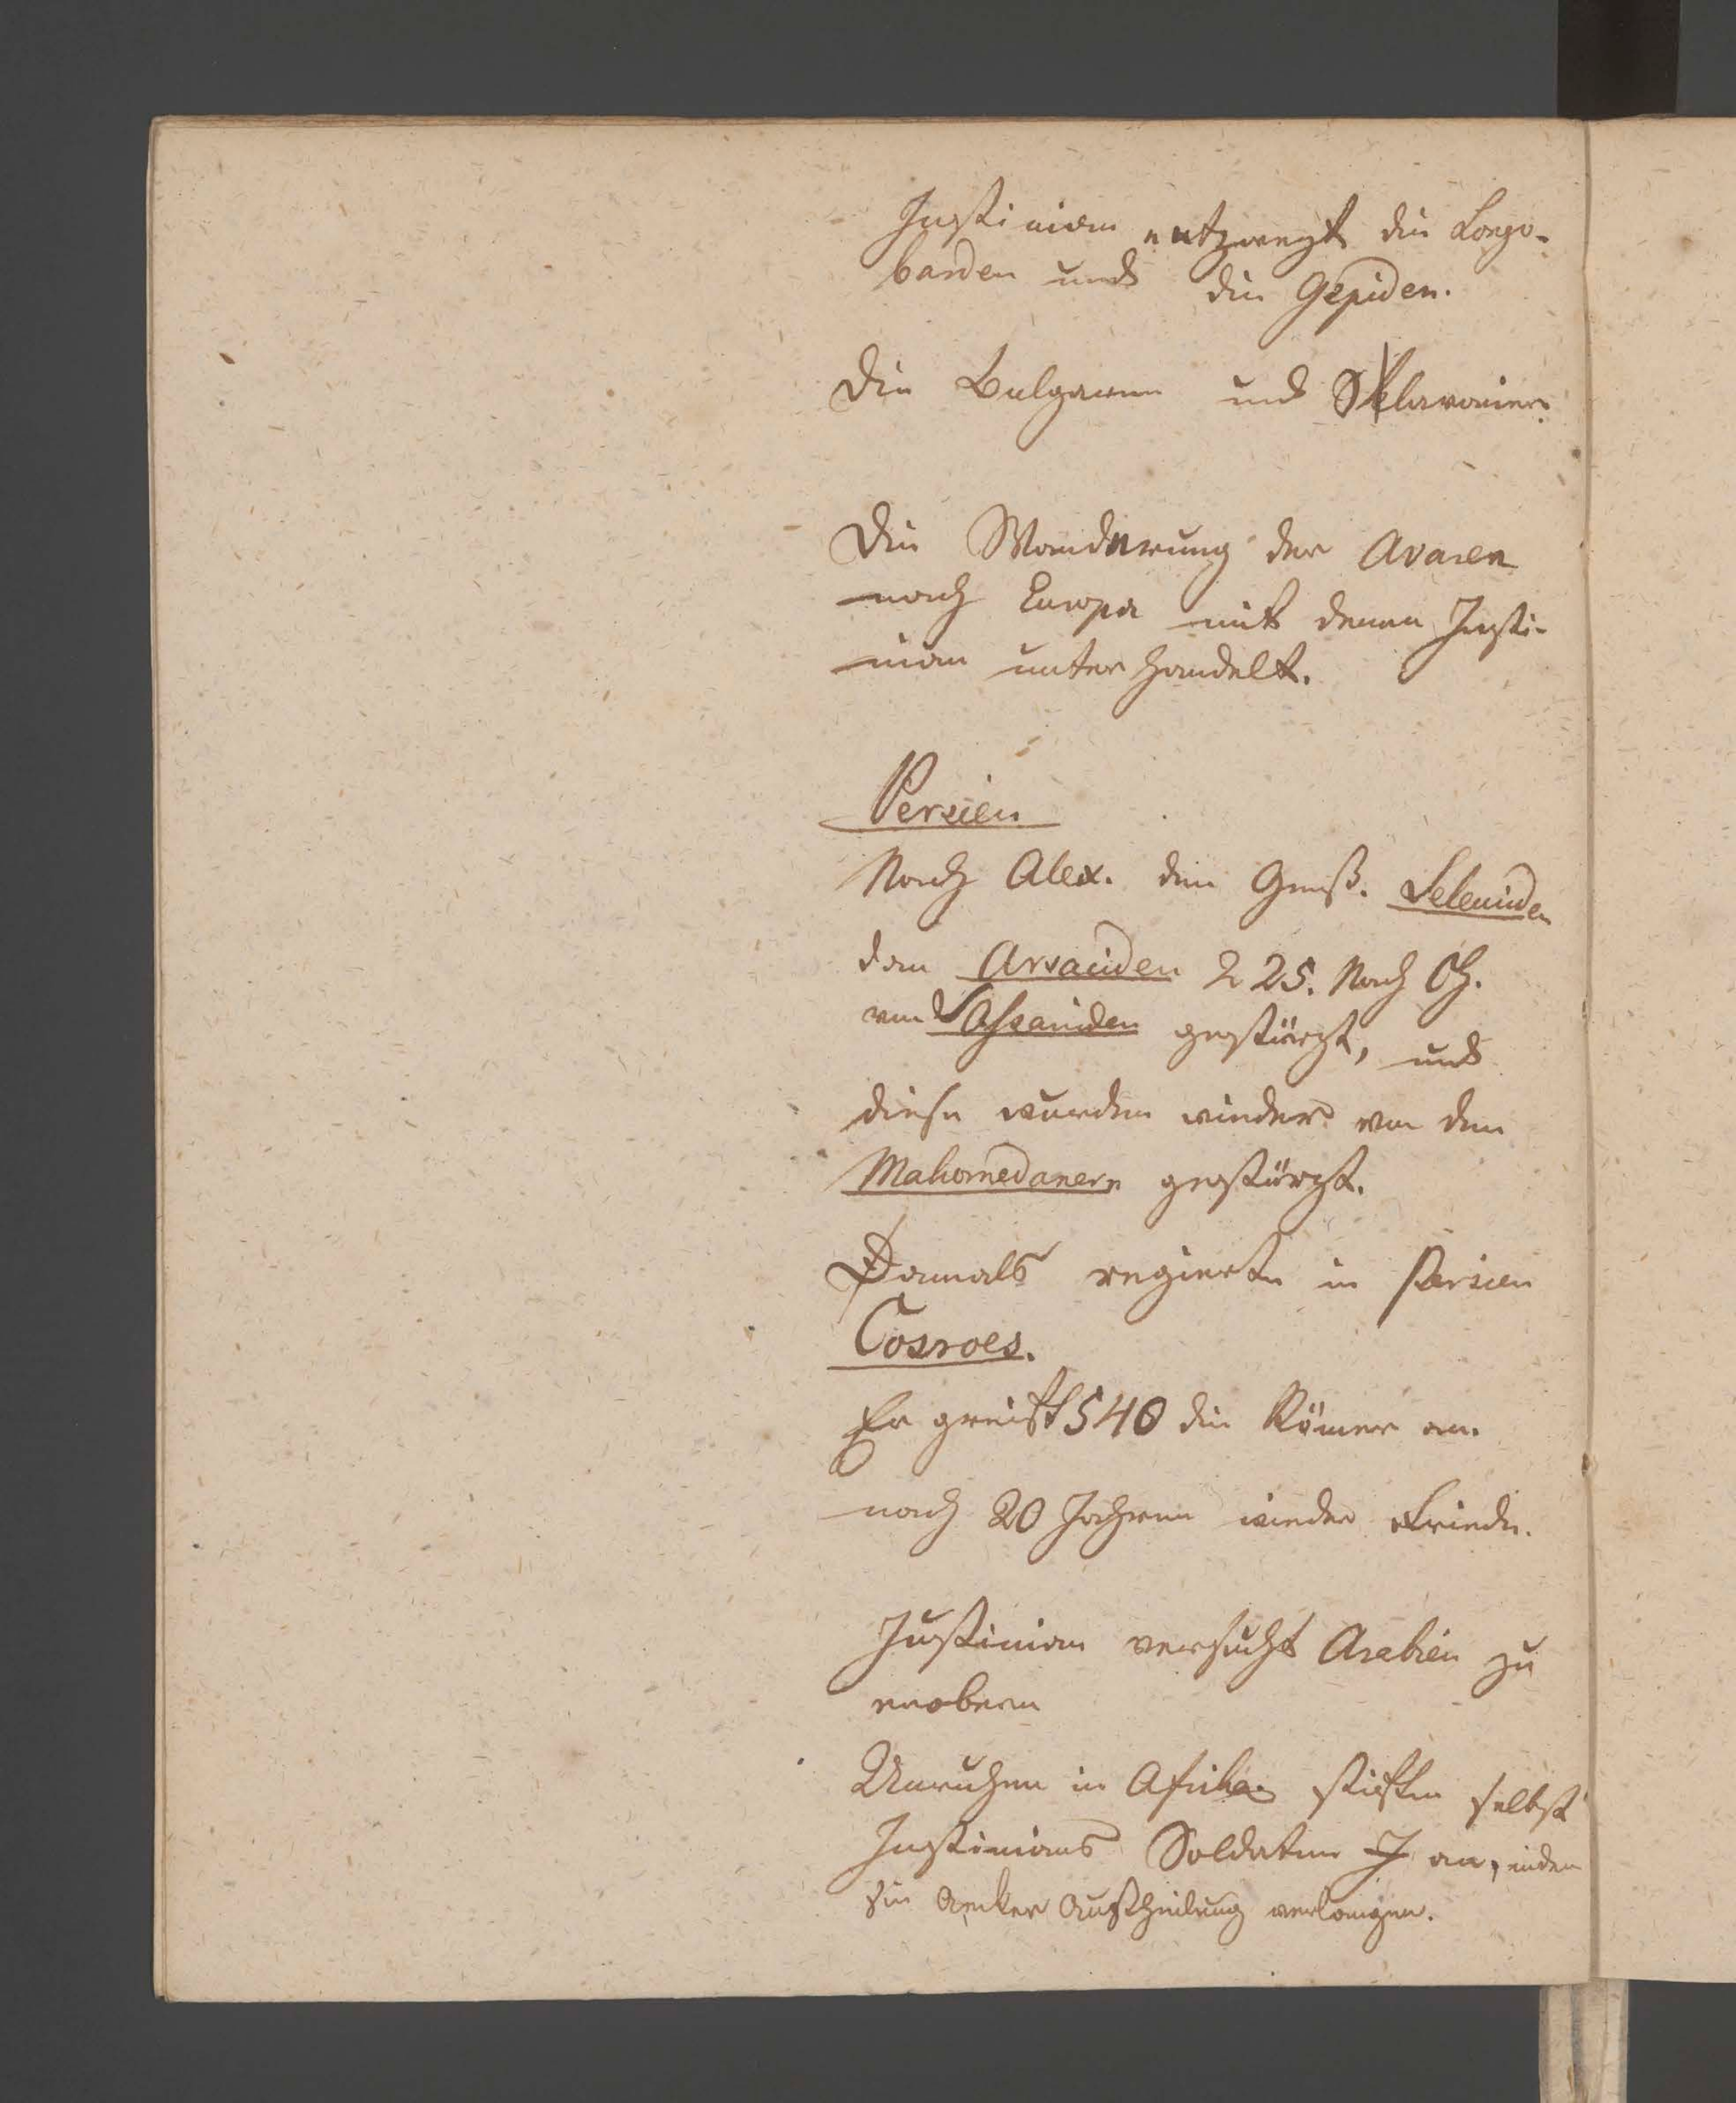 Justinian entzweyt die Longo-
barden und die Gepiden.
Die Bulgaren und Sklavonier.
Die Wanderung der Avaren
nach Europa mit denen Justi-
nian unterhandelt.
Persien
Nach Alex. den Groß. Seleuciden
dan Arsaciden 225. Nach Ch.
von Sassaniden gestürzt, und
diese wurden wieder von den
Mahomedanern gestürzt.
Damals regierte in Persien
Cosroes.
Er greift 540 die Römer an.
nach 20 Jahren wieder Friede.
Justinian versucht Arabien zu
erobern
Unruhen in Afrika stiften selbst
Justinians Soldaten an, indem
sie Aecker Austheilung verlangen.